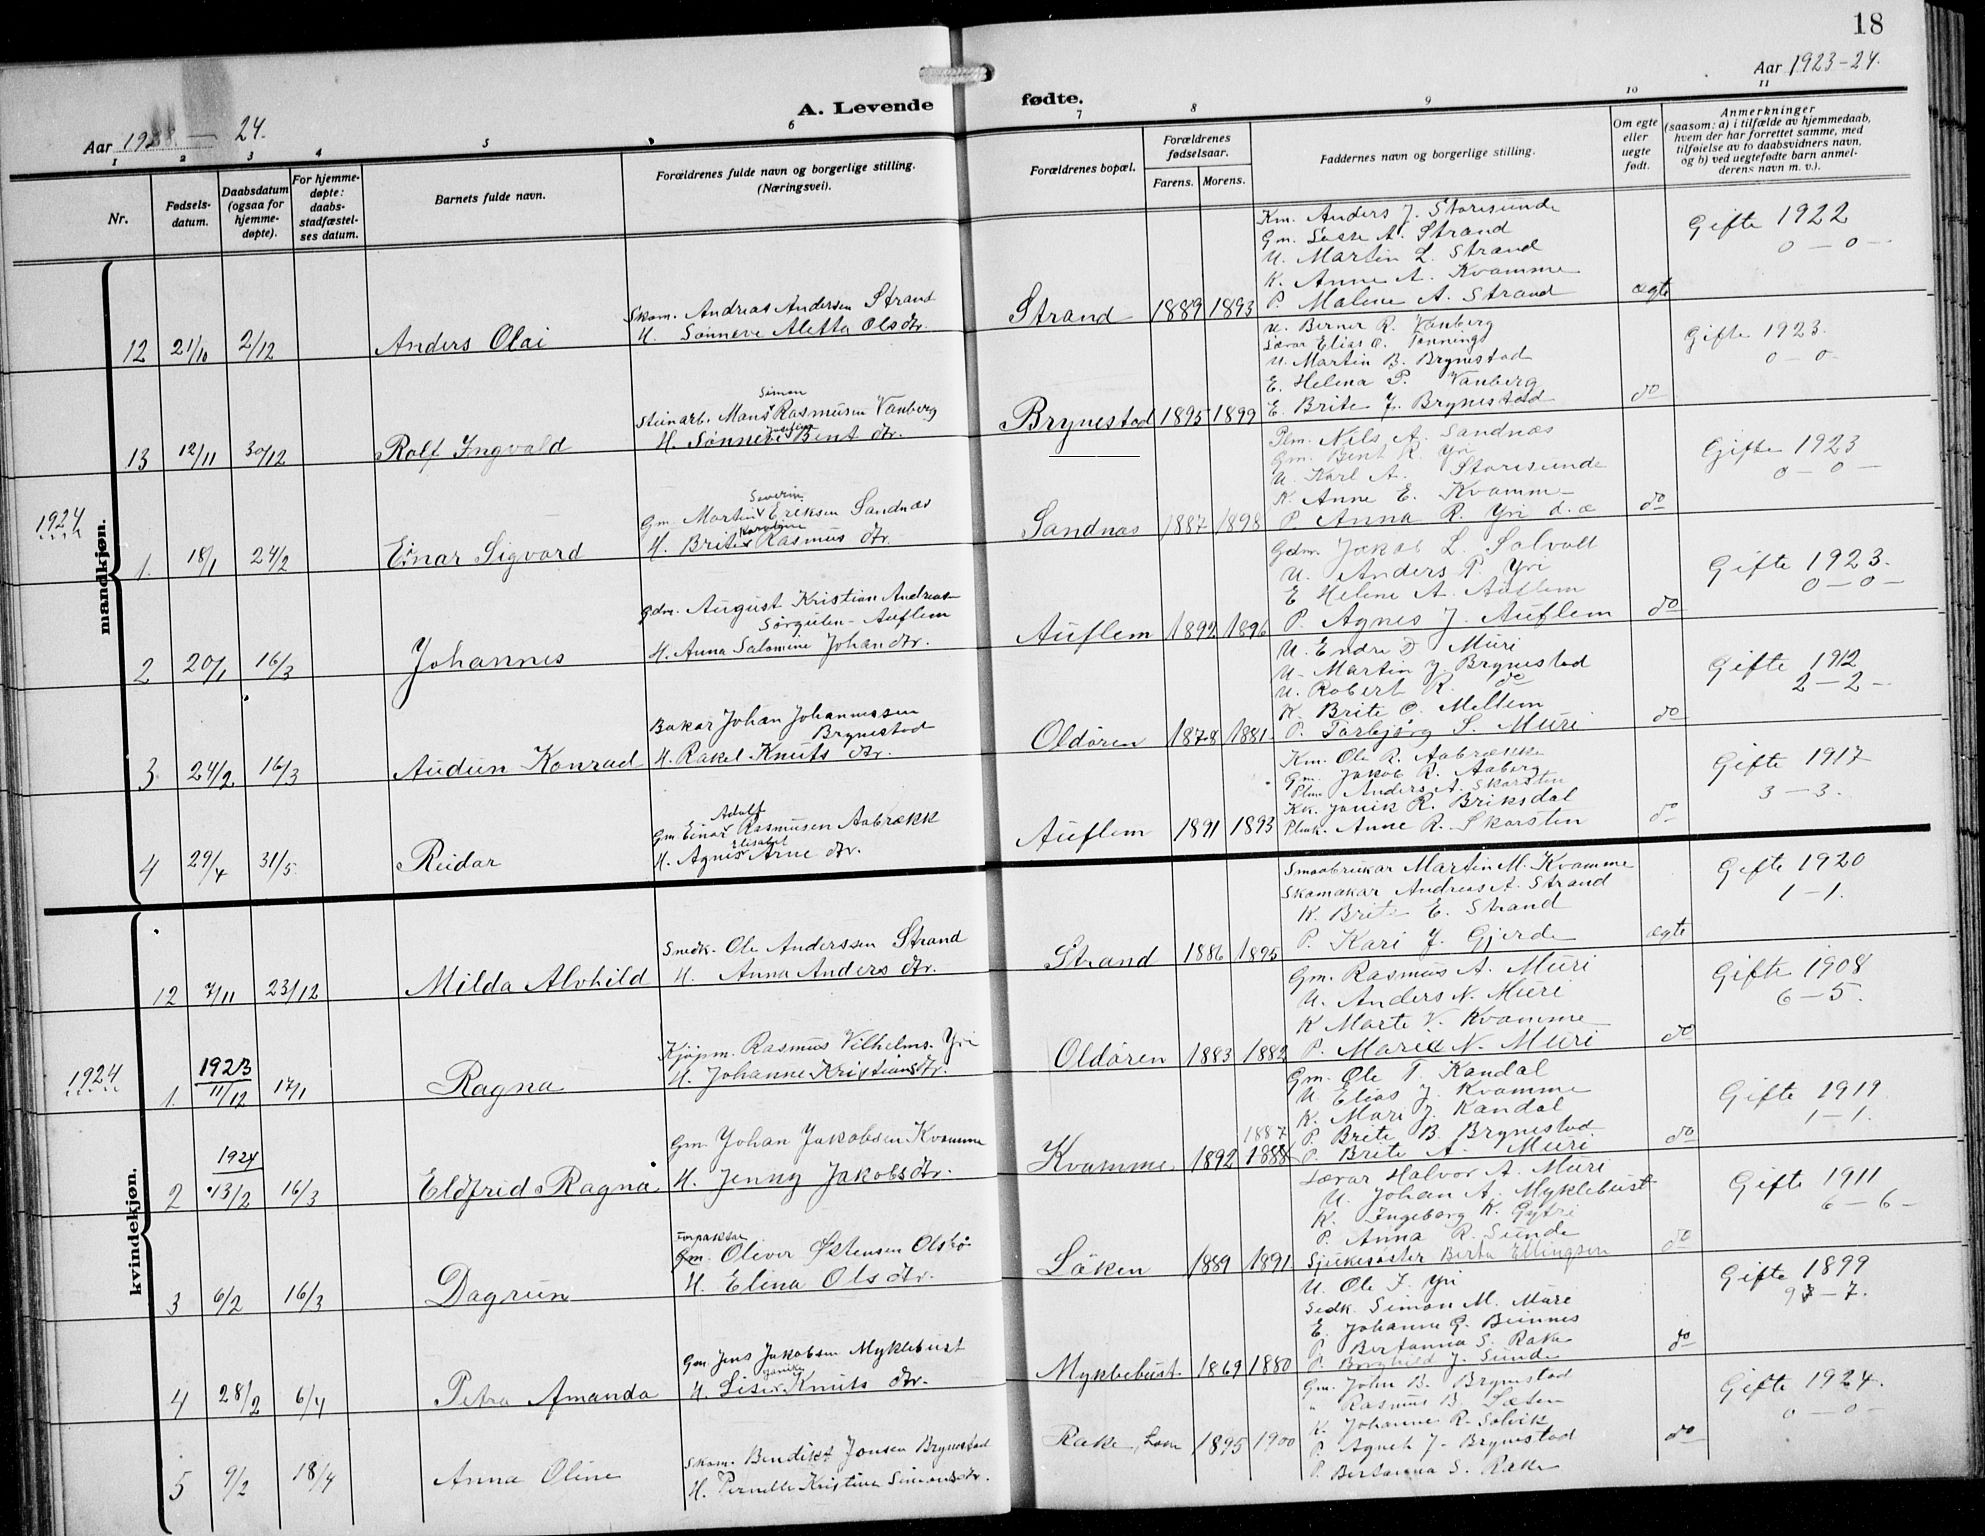 18
Aar 1923-24.
Aar 1923 — 24.
A. Levende fødte.
1 2 3 4 5 6 7 8 9 10 11
Nr.
Fødsels-
datum.
Daabsdatum
(ogsaa for
hjemme-
døpte).
For hjemme-
døpte:
daabs-
stadfæstel-
ses datum.
Barnets fulde navn.
Forældrenes fulde navn og borgerlige stilling.
(Næringsvei).
Forældrenes bopæl.
Forældrenes
fødselsaar.
Farens. Morens.
Faddernes navn og borgerlige stilling.
Om egte
eller
uegte
født.
Anmerkninger
(saasom: a) i tilfælde av hjemmedaab,
hvem der har forrettet samme, med
tilføielse av to daabsvidners navn,
og b) ved uegtefødte barn anmel-
derens navn m. v.).
mandkjøn.
12 21/10 2/12 Anders Olai
Skom. Andreas Andersen Strand
H. Sønneve Aletta Olsdtr.
Strand 1889 1893
Km. Anders J. Storesunde
Gm. Lasse A. Strand
U. Martin L. Strand
K. Anne A. Kvamme
P. Malene A. Strand
ægte
Gifte 1922
0 — 0 —
13 12/11 30/12 Rolf Ingvald
Simon
Steinarb. Mons Rasmusen Vanberg
H. Sønneve Bent dtr.
Brynestad 1895 1899
U. Berner R. Vanberg
Lærar Elias O. Tønnings
U. Martin B. Brynestad
E. Helena P. Vanberg
E. Brite J. Brynestad
do
Gifte 1923.
0 — 0 —
1924
1. 18/1 24/2 Einar Sigvard
Severin
Gm. Martin Eriksen Sandnæs
Karoline
H. Brite Rasmus dtr.
Sandnæs 1887 1898
Plm. Nils A. Sandnæs
Gm. Bent R. Yri
U. Karl A. Storesunde
K. Anne E. Kvamme
P. Anna R. Yri d.æ
do
Gifte 1923
0 — 0 —
2 20/1 16/3 Johannes
Gdm. August Kristian Andreas-
Sørgulen - Auflem
H. Anna Salomine Johan dtr.
Auflem 1892 1896
Gdm. Jakob L. Solvoll
U. Anders P. Yri
E Helene A. Auflem
P. Agnes J. Auflem
do
Gifte 1923.
0 — 0 —
3 24/2 16/3 Audun Konrad
Bakar Johan Johannessen
Brynestad
H. Rakel Knuts dtr.
Oldøren 1878 1881
U. Endre D Muri
U. Martin J. Brynestad
U. Robert R. do
K. Brite O. Meltem
P. Torbjørg S. Muri
do
Gifte 1912
2 — 2 —
4 29/4 31/5. Reidar
Adolf
Gm Einar Rasmusen Aabrekk
Elisabet
H. Agnes Arne dtr.
Auflem 1891 1893
Km. Ole R. Aabrekke
Gm. Jakob R. Aaberg
Plm. Anders A. Skorsten
Kk. Janik R. Briksdal
Plmk. Anne R. Skorsten
do
Gifte 1917
3 — 3.
kvindekjøn.
12 7/11 23/12 Milda Alvhild
Snedk. Ole Anderssen Strand
H. Anna Anders dtr.
Strand 1886 1895
Smaabrukar Martin M. Kvamme
Skomakar Andreas A. Strand
K. Brite E. Strand
P. Kari J. Gjerde
ægte
Gifte 1920
1 — 1.
1924
1. 1923 11/12 17/1 Ragna
Kjøpm. Rasmus Vilhelms. Yri
H. Johanne Kristiansdtr.
Oldøren 1883 1882
Gm. Rasmus A. Muri
U. Anders N. Muri
K Marte V. Kvamme
P. Maria N. Muri
do
Gifte 1908
6 — 5.
2 1924 13/2 16/3 Eldfrid Ragna
Gm. Johan Jakobsen Kvamme
H. Jenny Jakobsdtr.
Kvamme 1892 1887 1888
Gm. Ole T. Kandal
U Elias J. Kvamme
K. Mari J. Kandal
P. Brite B. Brynestad
P. Brite A. Muri
do
Gifte 1919
1 — 1.
3 6/2 16/3 Dagrun
Forpaktar
Gm. Oliver Østensen Olsbø
H. Elina Ols dtr.
Løken 1889 1891
Lærar Halvor A. Muri
U. Johan A. Myklebust
K. Ingeborg K. Gytri
P. Anna R. Sunde
Sjukesøster Berta Ellingsen
do
Gifte 1911
6 — 6 —
4 28/2 6/4 Petra Amanda
Gm Jens Jakobsen Myklebust
Janike
H. Lise Knuts dtr.
Myklebust 1869 1880
U. Ole J. Yri
Sedk. Simon M. Muri
E. Johanne G. Beinnes
P Bertanna S. Rake
P. Borghild J. Sunde
do
Gifte 1899
9 — 7.
5 9/2 18/4 Anna Oline
Skom. Bendikt Jonsen Brynestad
H. Pernille Kristine Simonsdtr.
Rake, Loen 1895 1900
Gm. John B. Brynestad
" Rasmus B. Sæten
K. Johanne R. Solvik
P. Agneth J. Brynestad
P. Bertanna S. Rake
do
Gifte 1924.
0 — 0 —